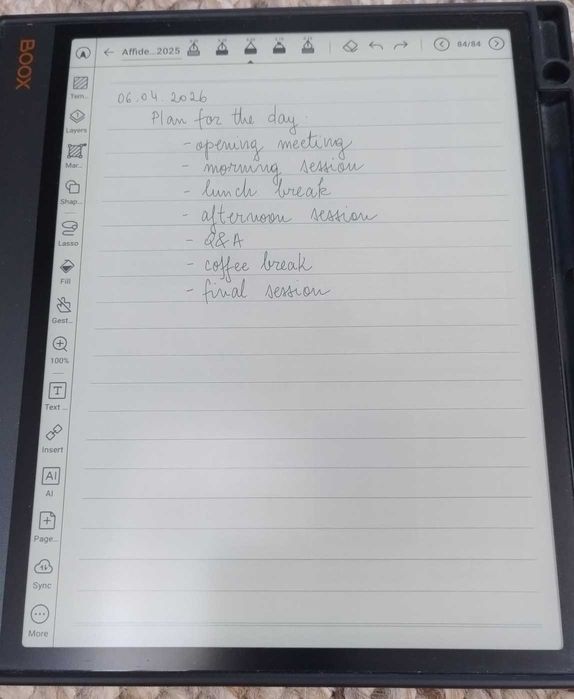 BOOX
Affide...2025
84/84
Tem...
Layers
Mar...
Shap...
Lasso
Fill
Gest...
100%
Text ...
Insert
AI
AI
Page...
Sync
More
06.04.2026
Plan for the day
- opening meeting
- morning session
- lunch break
- afternoon session
- Q&A
- coffee break
- final session